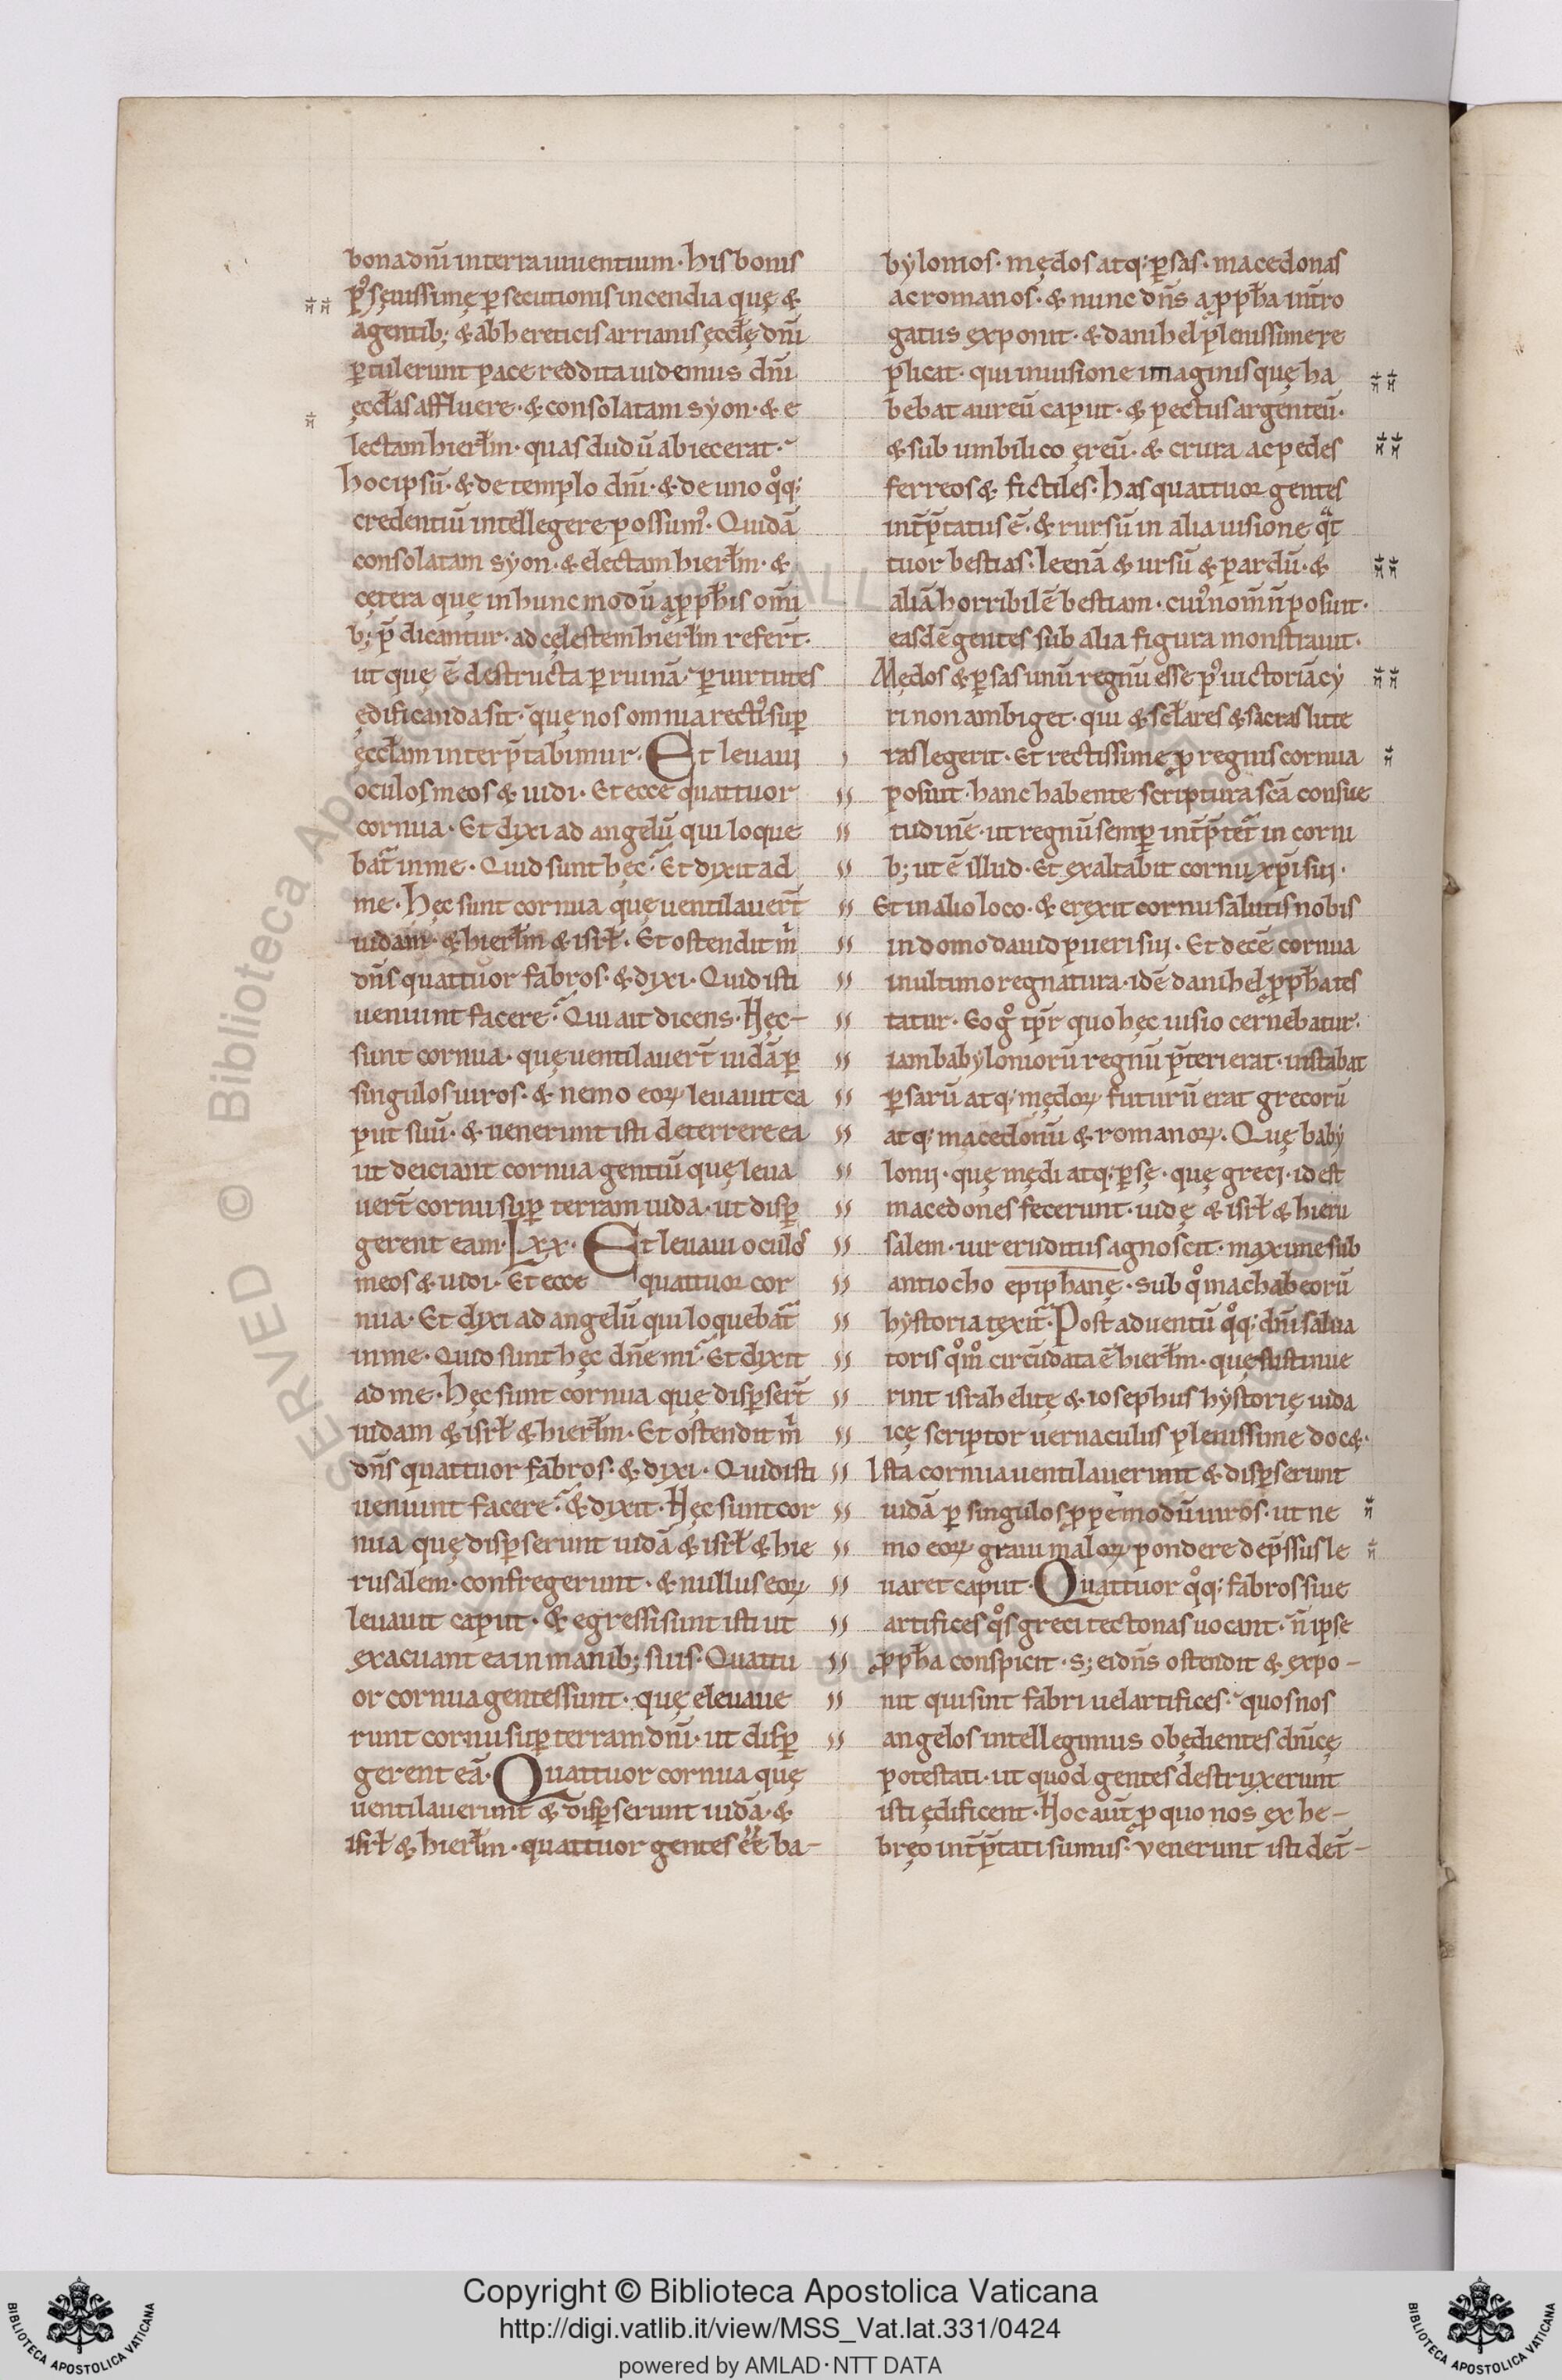 bona dn̄i in terra uiuentium· his bonis
p᷒ sęuissimę ꝑsecutionis incendia quę &
a gentib; & ab hereticis arrianis ęcclę dn̄i
ꝑtulerunt pace reddita uidemus dn̄i
ęcclas affluere· & consolatam syon· & e
lectam hierłm· quas dudū abiecerat·
hoc ipsū· & de templo dn̄i· & de uno qͦq;
credentiū intellegere possum᷒· Quidā
consolatam syon· & electam hierłm· &
cętera quę in hunc modū a ꝓph̄is om̄i
b; p̄dicantur· ad cęlestem hierłm refer̄t·
ut quę ē destructa ꝑ ruinā· ꝑ uirtutes
ędificanda sit· quę nos omnia recti᷒ suꝑ
ęcclam interp̄tabimur· Et leuaui
oculos meos & uidi· Et ecce quattuor
cornua· Et dyxi ad angelū qui loque
bat̄ in me· Quid sunt hęc· Et dyxit ad
me· Hęc sunt cornua quę uentilauer̄t
iudam· & hierłm & isrł· Et ostendit m̄
dn̄s quattuor fabros· & dyxi· Quid isti
ueniunt facere· Qui ait dicens· Hęc-
sunt cornua· quę uentilauer̄t iudā ꝑ
singulos uiros· & nemo eoꝝ leuauit ca
put suū· & uenerunt isti deterrere ea
ut deiciant cornua gentiū quę leua
uer̄t cornu suꝑ terram iuda· ut disꝑ
gerent eam· Lxx· Et leuaui oculos
meos & uidi· Et ecce quattuor cor
nua· Et dyxi ad angelū qui loquebat̄
in me· Quid sunt hęc dn̄e mi· Et dyxit
ad me· Hęc sunt cornua quę disꝑser̄t
iudam & isrł & hierłm· Et ostendit m̄
dn̄s quattuor fabros· & dyxi· Quid isti
ueniunt facere· & dyxit· Hęc sunt cor
nua quę disꝑserunt iudā & isrł & hie
rusalem· confregerunt· & nullus eoꝝ
leuauit caput· & egressi sunt isti ut
exacuant ea in manib; suis· Quattu
or cornua gentes sunt· quę eleuaue
runt cornu suꝑ terram dn̄i· ut disꝑ
gerent eā· Quattuor cornua quę
uentilauerunt & disꝑserunt iudā· &
isrł & hierłm· quattuor gentes eē ba-
bylonios· mędos atq; ꝑsas· macedonas
ac romanos· & nunc dn̄s a ꝓph̄a int̄ro
gatus exponit· & danihel plenissime re
plicat· qui in uisione imaginis quę ha
bebat aureū caput· & pectus argenteū·
& sub umbilico ęreū· & crura ac pedes
ferreos & fictiles· has quattuor gentes
int̄p̄tatus ē· & rursū in alia uisione qͣt
tuor bestias· leenā & ursū & pardū· &
aliā horribilē bestiam· cui᷒ nom̄ n̄ posuit·
easdē gentes sub alia figura monstrauit·
Mędos & ꝑsas unū regnū esse p᷒ uictoriā cy
ri non ambiget· qui & sclares & sacras litte
ras legerit· Et rectissime ꝓ regnis cornua
posuit· hanc habente scriptura scā consue
tudinē· ut regnū semꝑ int̄p̄tet̄ in cornu
b; ut ē illud· Et exaltabit cornu xp̄i sui·
Et in alio loco· & erexit cornu salutis nobis
in domo dauid pueri sui· Et decē cornua
in ultimo regnatura· idē danihel ꝓph̄ates
tatur· Eo gͦ tp̄r quo hęc uisio cernebatur·
iam babyloniorū regnū p̄terierat· instabat
ꝑsarū atq; mędoꝝ futurū erat grecorū
atq; macedonū & romanoꝝ· Quę baby
lonii· quę mędi atq; ꝑsę· quę greci· id est
macedones fecerunt· iudę & isrł & hieru
salem· uir eruditus agnoscit· maxime sub
antiocho epiphanę· sub qͦ machabeorū
hystoria texit̄· Post aduentū qͦq; dn̄i salua
toris qͦm̄ circūdata ē hierłm· quę sustinue
rint israhelitę & iosephus hystorię iuda
icę scriptor uernaculus plenissime doc&·
Ista cornua uentilauerunt & disꝑserunt
iudā ꝑ singulos ꝓpemodū uiros· ut ne
mo eoꝝ graui maloꝝ pondere dep̄ssus le
uaret caput· Quattuor qͦq; fabros siue
artifices qͦs greci tectonas uocant· n̄ ipse
ꝓph̄a conspicit· s; ei dn̄s ostendit & expo-
nit qui sint fabri uel artifices· quos nos
angelos intellegimus obędientes dn̄icę
potestati· ut quod gentes destruxerunt
isti ędificent· Hoc aut̄ ꝓ quo nos ex he-
bręo int̄p̄tati sumus· venerunt isti det̄-
Copyright © Biblioteca Apostolica Vaticana
http://digi.vatlib.it/view/MSS_Vat.lat.331/0424
powered by AMLAD · NTT DATA
BIBLIOTECA APOSTOLICA VATICANA
BIBLIOTECA APOSTOLICA VATICANA